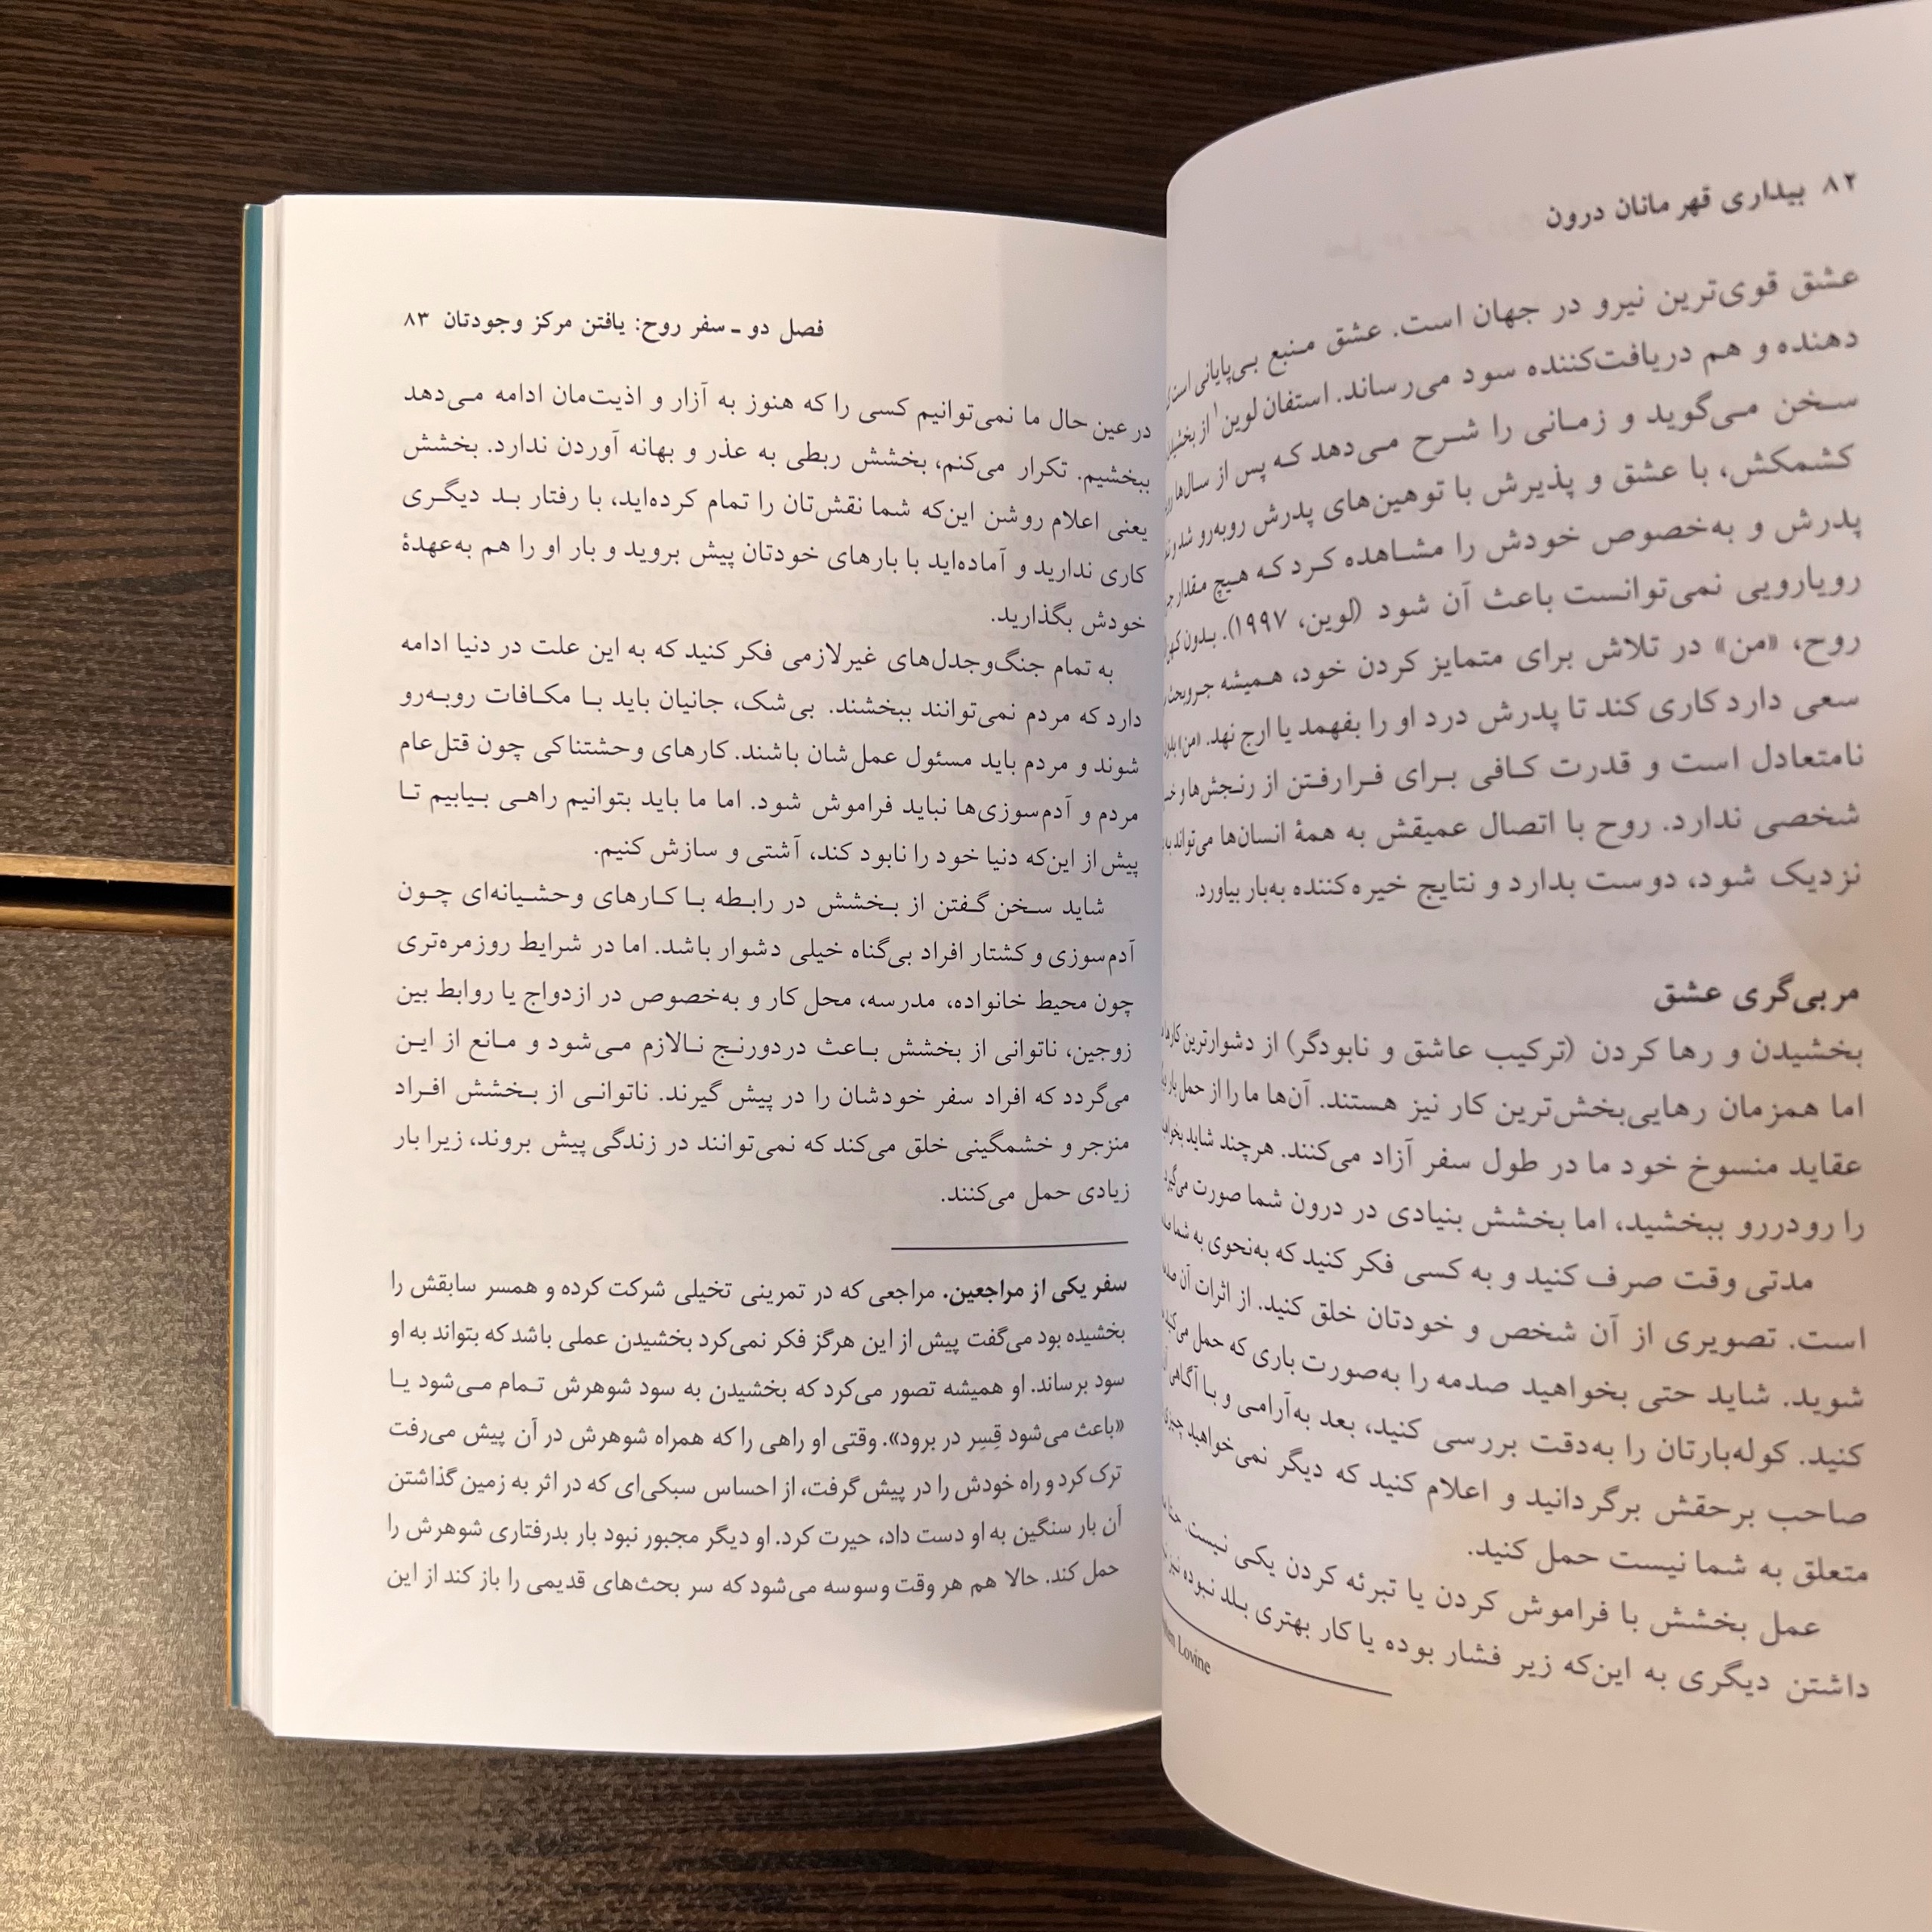 ۸۲ بیداری قهرمانان درون
عشق قوی‌ترین نیرو در جهان است. عشق منبع بی‌پایانی است
دهنده و هم دریافت‌کننده سود می‌رساند. استفان لوین۱ از
سخن می‌گوید و زمانی را شرح می‌دهد که پس از سال‌ها
کشمکش، با عشق و پذیرش با توهین‌های پدرش روبه‌رو شد
پدرش و به‌خصوص خودش را مشاهده کرد که هیچ مقدار
رویارویی نمی‌توانست باعث آن شود (لوین، ۱۹۹۷). بدون
روح، «من» در تلاش برای متمایز کردن خود، همیشه
سعی دارد کاری کند تا پدرش درد او را بفهمد یا ارج نهد. «من»
نامتعادل است و قدرت کافی برای فرارفتن از رنجش‌ها و
شخصی ندارد. روح با اتصال عمیقش به همهٔ انسان‌ها می‌تواند
نزدیک شود، دوست بدارد و نتایج خیره‌کننده به‌بار بیاورد.
مربی‌گری عشق
بخشیدن و رها کردن (ترکیب عاشق و نابودگر) از دشوارترین
اما همزمان رهایی‌بخش‌ترین کار نیز هستند. آن‌ها ما را از حمل بار
عقاید منسوخ خود ما در طول سفر آزاد می‌کنند. هرچند شاید
را رودررو ببخشید، اما بخشش بنیادی در درون شما صورت
مدتی وقت صرف کنید و به کسی فکر کنید که به‌نحوی به شما
است. تصویری از آن شخص و خودتان خلق کنید. از اثرات آن
شوید. شاید حتی بخواهید صدمه را به‌صورت باری که حمل
کنید. کوله‌بارتان را به‌دقت بررسی کنید، بعد به‌آرامی و با آگاهی
صاحب برحقش برگردانید و اعلام کنید که دیگر نمی‌خواهید
متعلق به شما نیست حمل کنید.
عمل بخشش با فراموش کردن یا تبرئه کردن یکی نیست.
داشتن دیگری به این‌که زیر فشار بوده یا کار بهتری بلد نبوده نیز
Lovine
فصل دو ـ سفر روح: یافتن مرکز وجودتان ۸۳
در عین حال ما نمی‌توانیم کسی را که هنوز به آزار و اذیت‌مان ادامه می‌دهد
ببخشیم. تکرار می‌کنم، بخشش ربطی به عذر و بهانه آوردن ندارد. بخشش
یعنی اعلام روشن این‌که شما نقش‌تان را تمام کرده‌اید، با رفتار بد دیگری
کاری ندارید و آماده‌اید با بارهای خودتان پیش بروید و بار او را هم به‌عهدهٔ
خودش بگذارید.
به تمام جنگ‌وجدل‌های غیرلازمی فکر کنید که به این علت در دنیا ادامه
دارد که مردم نمی‌توانند ببخشند. بی‌شک، جانیان باید با مکافات روبه‌رو
شوند و مردم باید مسئول عمل‌شان باشند. کارهای وحشتناکی چون قتل‌عام
مردم و آدم‌سوزی‌ها نباید فراموش شود. اما ما باید بتوانیم راهی بیابیم تا
پیش از این‌که دنیا خود را نابود کند، آشتی و سازش کنیم.
شاید سخن گفتن از بخشش در رابطه با کارهای وحشیانه‌ای چون
آدم‌سوزی و کشتار افراد بی‌گناه خیلی دشوار باشد. اما در شرایط روزمره‌تری
چون محیط خانواده، مدرسه، محل کار و به‌خصوص در ازدواج یا روابط بین
زوجین، ناتوانی از بخشش باعث دردورنج نالازم می‌شود و مانع از این
می‌گردد که افراد سفر خودشان را در پیش گیرند. ناتوانی از بخشش افراد
منزجر و خشمگینی خلق می‌کند که نمی‌توانند در زندگی پیش بروند، زیرا بار
زیادی حمل می‌کنند.
سفر یکی از مراجعین. مراجعی که در تمرینی تخیلی شرکت کرده و همسر سابقش را
بخشیده بود می‌گفت پیش از این هرگز فکر نمی‌کرد بخشیدن عملی باشد که بتواند به او
سود برساند. او همیشه تصور می‌کرد که بخشیدن به سود شوهرش تمام می‌شود یا
«باعث می‌شود قِسِر در برود». وقتی او راهی را که همراه شوهرش در آن پیش می‌رفت
ترک کرد و راه خودش را در پیش گرفت، از احساس سبکی‌ای که در اثر به زمین گذاشتن
آن بار سنگین به او دست داد، حیرت کرد. او دیگر مجبور نبود بار بدرفتاری شوهرش را
حمل کند. حالا هم هر وقت وسوسه می‌شود که سر بحث‌های قدیمی را باز کند از این